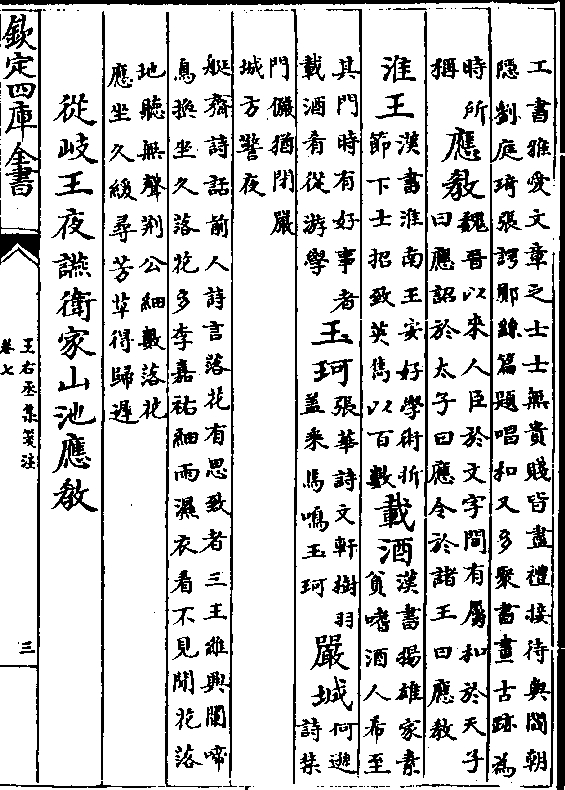 工書雅愛文章之士士無貴賤皆盡禮接待與閻朝
隱劉庭琦張諤鄭繇篇題唱和又多聚書畫古跡為
時所稱應教魏晉以來人臣於文字間有屬和於天子
曰應詔於太子曰應令於諸王曰應教
淮王漢書淮南王安好學術折
節下士招致英雋以百數載酒漢書揚雄家素
貧嗜酒人希至
其門時有好事者
載酒肴從游學玉珂張華詩文軒樹羽
蓋乘馬鳴玉珂嚴城何遜
詩禁
門儼猶閉嚴
城方警夜
艇齋詩話前人詩言落花有思致者三王維興闌啼
鳥換坐久落花多李嘉祐細雨濕衣看不見閒花落
地聽無聲荆公細數落花
應坐久緩尋芳草得歸遲
從岐王夜讌衛家山池應教
欽定四庫全書
王右丞集箋注
卷七
三